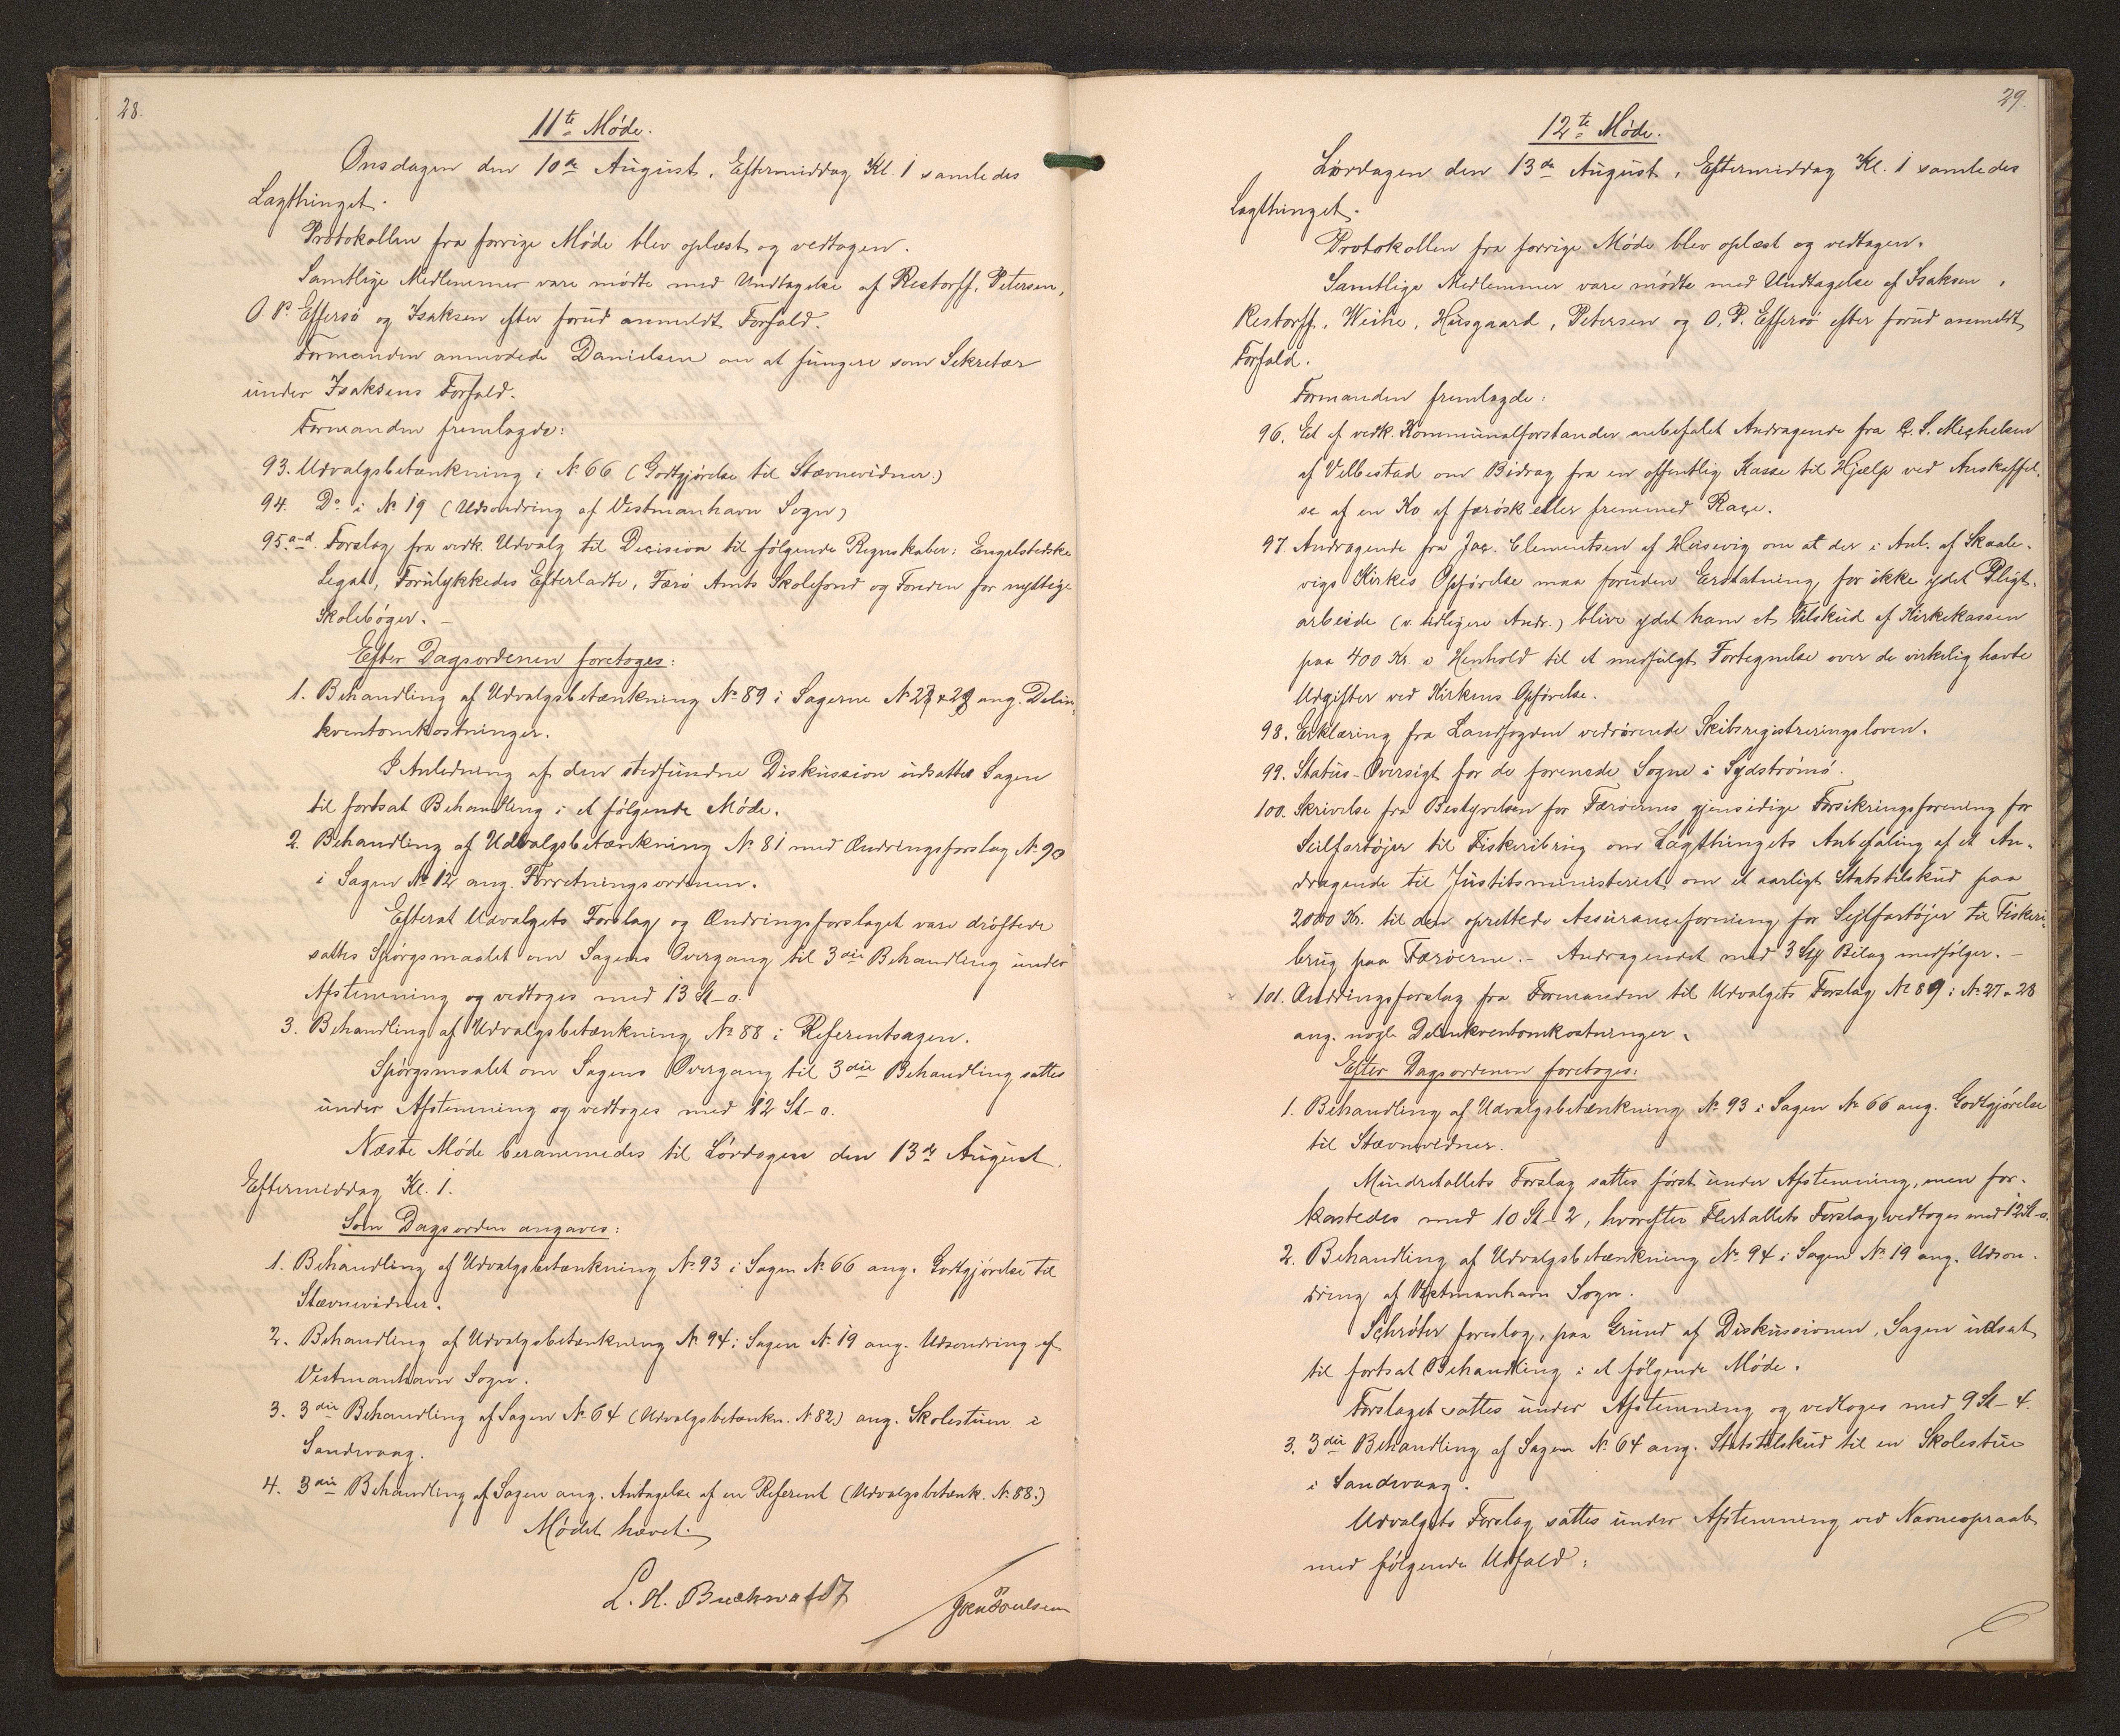 28.
11te Møde.
Onsdagen den 10de August, Eftermiddag Kl. 1 samledes
Lagthinget.
Protokollen fra forrige Møde blev oplæst og vedtagen.
Samtlige Medlemmer vare mødte med Undtagelse af Restorff, Petersen,
O. P. Effersø og Isaksen efter forud anmeldt Forfald.
Formanden anmodede Danielsen om at fungere som Sekretær
under Isaksens Forfald.
Formanden fremlagde:
93. Udvalgsbetænkning i No 66 (Godtgjørelse til Stævnevidner.)
94. Do i No 19 (Udsondring af Vestmanhavn Sogn)
95. a-d. Forslag fra vedk. Udvalg til Decision til følgende Regnskaber: Engelstedske
Legat, Forulykkedes Efterladte, Færø Amts Skolefond og Fonden for nyttige
Skolebøger. –
Efter Dagsordenen foretoges:
1. Behandling af Udvalgsbetænkning No 89 i Sagerne No 27 & 28 ang. Delin-
kventomkostninger.
I Anledning af den stedfundne Diskussion udsattes Sagen
til fortsat Behandling i et følgende Møde.
2. Behandling af Udvalgsbetænkning No 81 med Ændringsforslag No 90
i Sagen No 12 ang. Forretningsordenen.
Efterat Udvalgets Forslag og Ændringsforslaget vare drøftede
sattes Spørgsmaalet om Sagens Overgang til 3die Behandling under
Afstemning og vedtoges med 13 St – 0.
3. Behandling af Udvalgsbetænkning No 88 i Referentsagen.
Spørgsmaalet om Sagens Overgang til 3die Behandling sattes
under Afstemning og vedtoges med 12 St – 0.
Næste Møde berammedes til Lørdagen den 13de August,
Eftermiddag Kl. 1.
Som Dagsorden angaves:
1. Behandling af Udvalgsbetænkning No 93 i Sagen No 66 ang. Godtgjørelse til
Stævnevidner.
2. Behandling af Udvalgsbetænkning No 94 i Sagen No 19 ang. Udsondring af
Vestmanhavn Sogn.
3. 3die Behandling af Sagen No 64 (Udvalgsbetænkn. No 82) ang. Skolestuen i
Sandvaag.
4. 3die Behandling af Sagen ang. Antagelse af en Referent (Udvalgsbetænk. No 88.)
Mødet hævet.
L. H. Buchwaldt
29.
12te Møde.
Lørdagen den 13de August, Eftermiddag Kl. 1 samledes
Lagthinget.
Protokollen fra forrige Møde blev oplæst og vedtagen.
Samtlige Medlemmer vare mødte med Undtagelse af Isaksen,
Restorff, Weihe, Husgaard, Petersen og O. P. Effersø efter forud anmeldt
Forfald.
Formanden fremlagde:
96. Et af vedk. Kommunalforstander anbefalet Andragende fra S. Michelsen
af Velbestad om Bidrag fra en offentlig Kasse til Hjælp ved Anskaffel-
se af en Ko af færøsk eller fremmed Race.
97. Andragende fra Jac. Clementsen af Husevig om at der i Anl. af Skaale-
vigs Kirkes Opførelse maa foruden Erstatning for ikke ydet Pligt-
arbeide (v. tidligere Andr.) blive ydet ham et Tilskud af Kirkekassen
paa 400 Kr. i Henhold til et medfulgt Fortegnelse over de virkelig havte
Udgifter ved Kirkens Opførelse.
98. Erklæring fra Landfogden vedrørende Skibsregistreringsloven.
99. Status-Oversigt for de forenede Sogne i Sydstrømø.
100. Skrivelse fra Bestyrelsen for Færøernes gjensidige Forsikringsforening for
Seilfartøjer til Fiskeribrug om Lagthingets Anbefaling af et An-
dragende til Justitsministeriet om et aarligt Statstilskud paa
2000 Kr. til den oprettede Assuranceforening for Sejlfartøjer til Fiskeri-
brug paa Færøerne. – Andragendet med 3 Stk Bilag medfølger. –
101. Ændringsforslag fra Formanden til Udvalgets Forslag No 89 i No 27 & 28
ang. nogle Delinkventomkostninger.
Efter Dagsordenen foretoges:
1. Behandling af Udvalgsbetænkning No 93 i Sagen No 66 ang. Godtgjørelse
til Stævnevidner.
Mindretallets Forslag sattes først under Afstemning, men for-
kastedes med 10 St – 2, hvorefter Flertallets Forslag vedtoges med 12 St – 0.
2. Behandling af Udvalgsbetænkning No 94 i Sagen No 19 ang. Udson-
dring af Vestmanhavn Sogn.
Schrøter foreslog, paa Grund af Diskussionen, Sagen udsat
til fortsat Behandling i et følgende Møde.
Forslaget sattes under Afstemning og vedtoges med 9 St – 4.
3. 3die Behandling af Sagen No 64 ang. Statstilskud til en Skolestue
i Sandvaag.
Udvalgets Forslag sattes under Afstemning ved Navneopraab
med følgende Udfald: